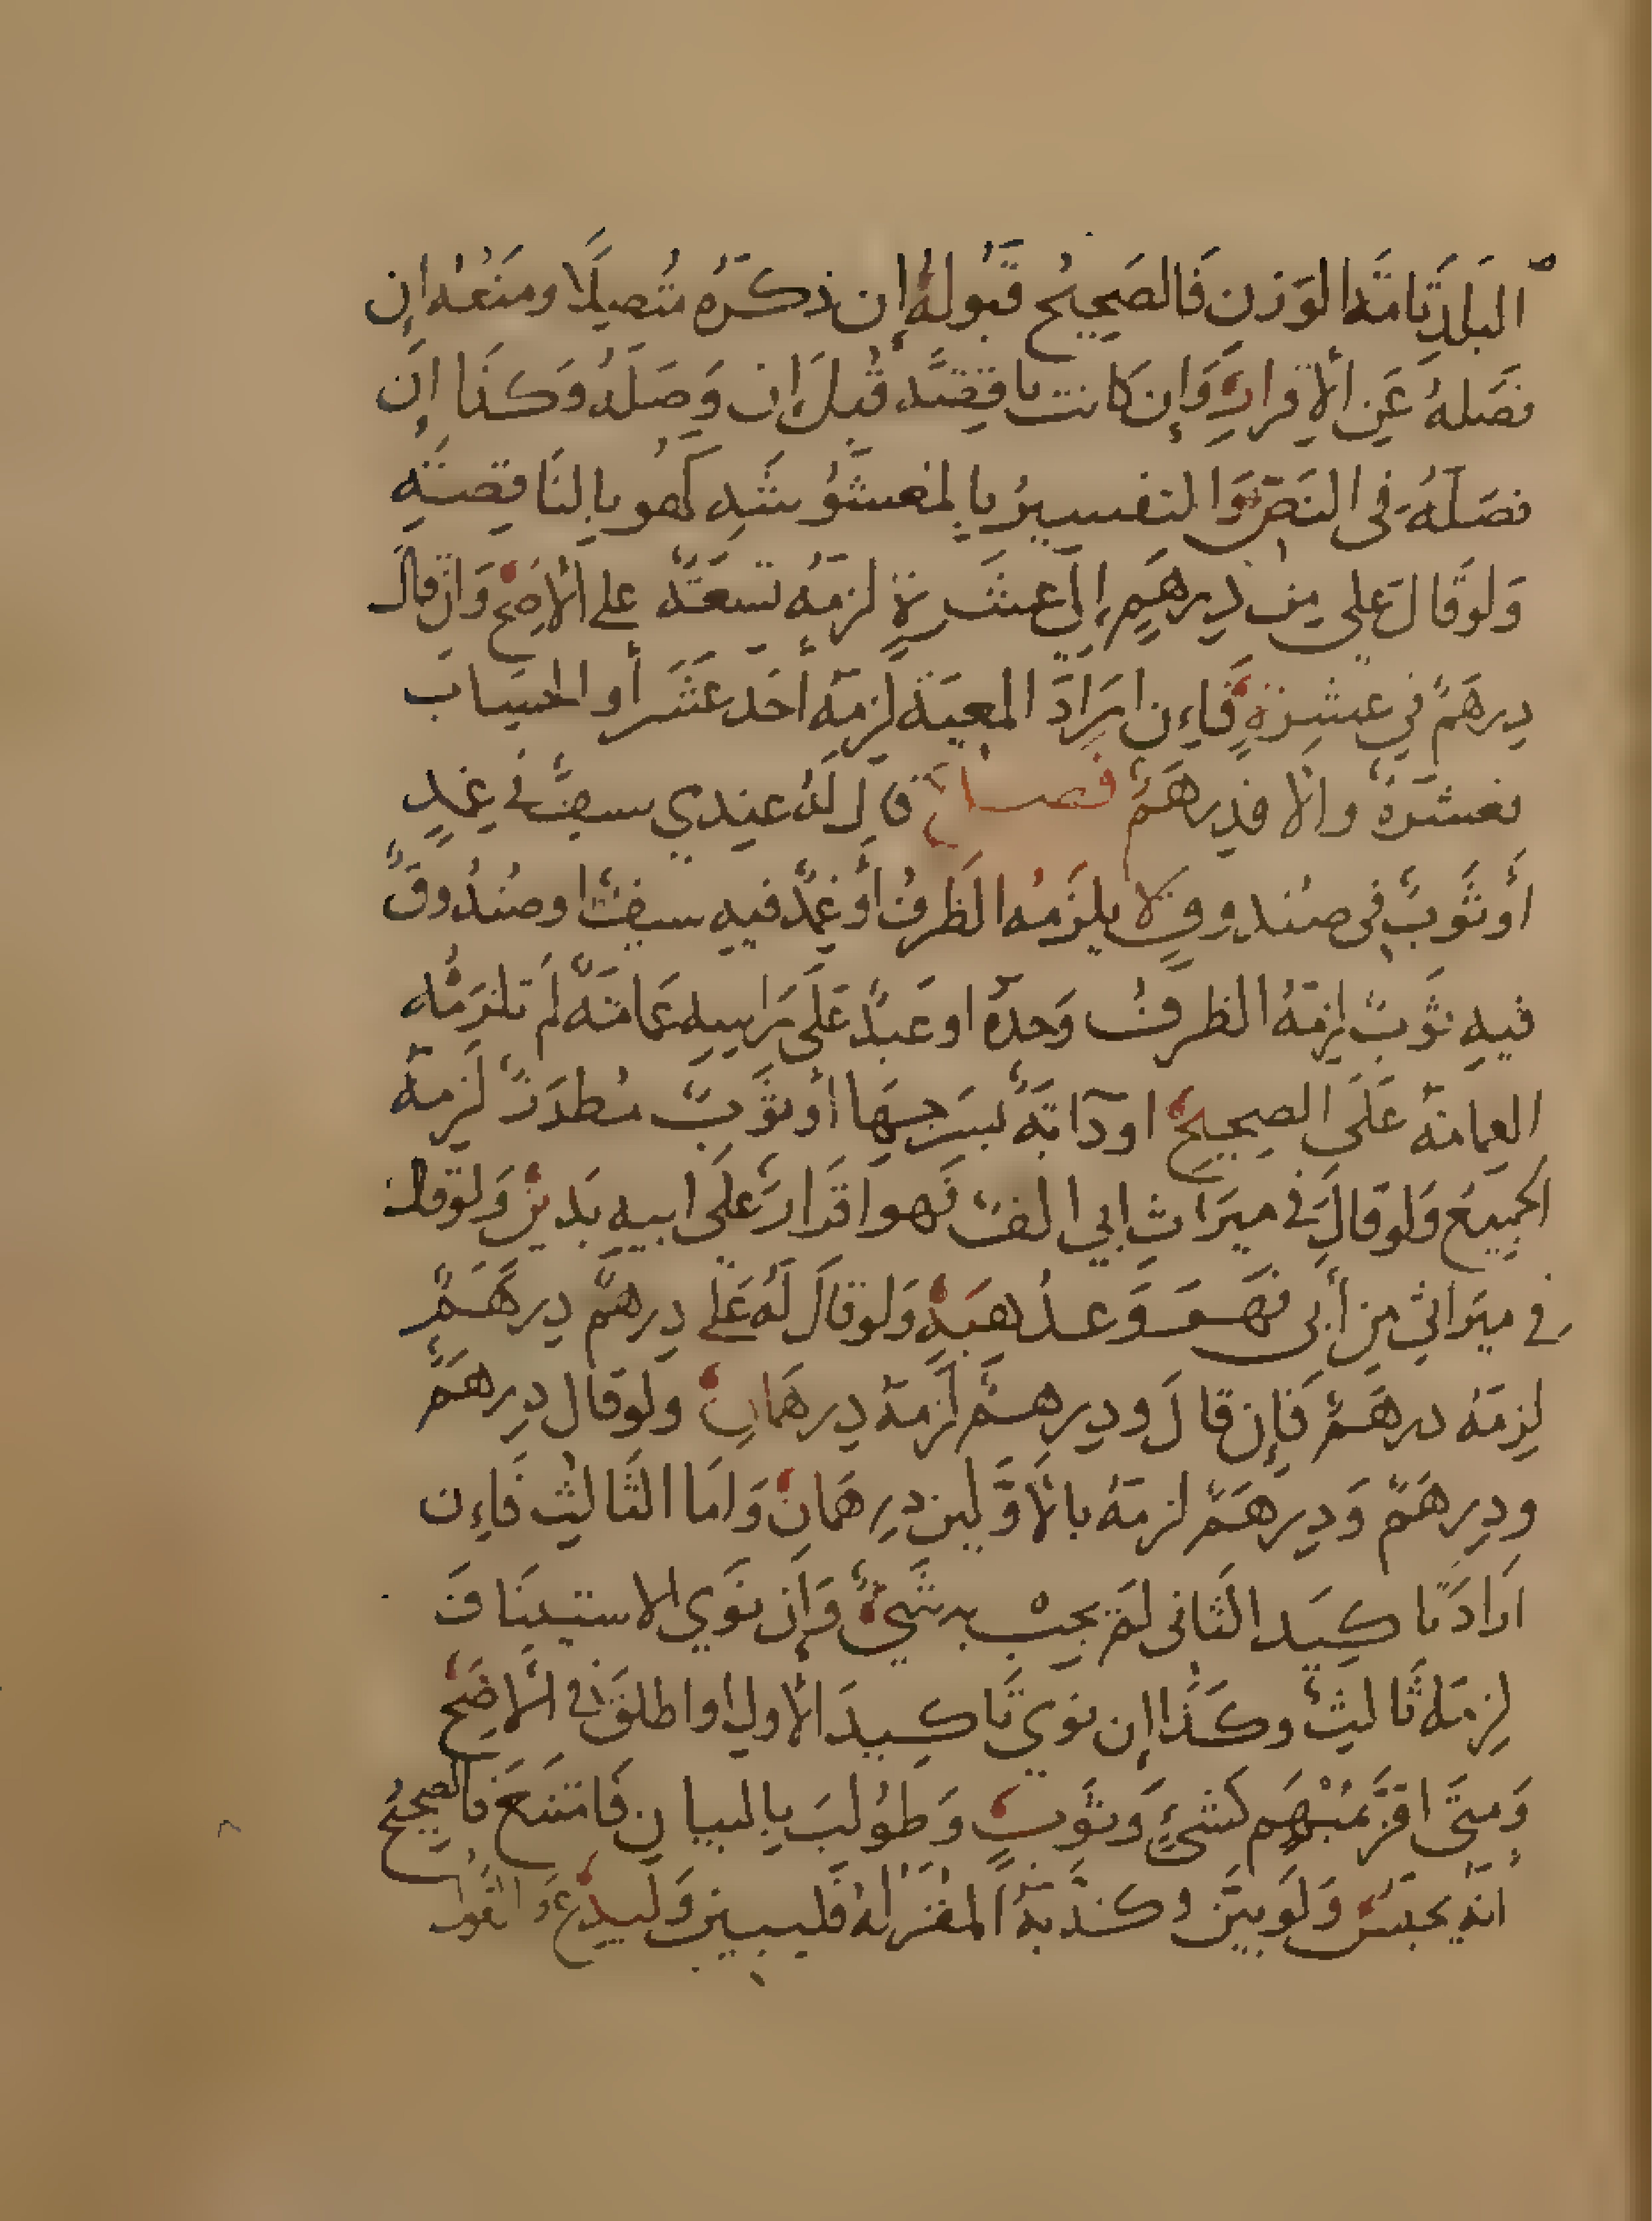 البَلدَ تَامَّة الوَزنِ فَالصَحِيحُ قَبُولهُ إن ذكَرَهُ مُتصِلًا ومَنعُه إن
فصَلهُ عَنِ ألاقرارِ وَإن كانت ناقِصَة قُبلَ إن وَصَلهُ وَكذَا إن
فصَلَهُ في النَصِّ وَالتفسيرُ بالمغشوُشَةِ كهُو بالنَاقِصَةِ
وَلوقَالَ علي مِن دِرهَمٍ إلي عشَرةٍ لزمَهُ تسعَةٌ علي ألاصَحِّ وَان قال
دِرهَمٌ في عشرَةٍ فَإن ارَادَ المعيَة لَزمَهُ أحَد عَشَر أو الحسَابَ
فعشَرةٌ والا فدِرهَمٌ فصل قال لهُ عِندي سيفٌ في غِمدٍ
أو ثَوبٌ في صُندوقٍ لا يلزَمُه الظَرفُ أوغِمدٌ فيهِ سيفٌ اوصُندُوقٌ
فيهِ ثَوبٌ لزمَهُ الظرفُ وَحدهُ اوعَبدٌ عَلَي رَاسِهِ عمَامَةٌ لَم تلزَمْه
العِمامَة عَلَى الصحِيحِ اودَابَةٌ بسَرجِهَا أوثَوبٌ مُطرَزٌ لَزمهُ
الجَمِيعُ وَلوقالَ في ميرَاثِ ابي الفٌ فَهواقرَارٌ عَلَى ابيهِ بدَينٍ وَلوقال
في ميرَاثي مِن أبي فَهوَ وَعدُ هبَةٍ وَلوقالَ لَهُ عَلي دِرهَمٌ دِرهَمٌ
لزمَهُ درهَمٌ فَإن قالَ ودِرهمٌ لَزمَهُ دِرهمَانِ وَلوقال دِرهَمٌ
ودِرهَمٌ وَدِرهَمٌ لزمَهُ بالأوَّلين دِرهمانِ وَامَا الثَالثُ فَإن
ارَادَ تاكيدَ الثاني لَم يَجبْ به شَيءٌ وَإن نوَي الاستينَافَ
لزِمَهُ ثالثٌ وكَذَا إن نوي تَاكيدَ الأول اواطلقَ في الاصَحِّ
وَمتَى اقرَّ بمُبْهَم كشَيءٍ وَثَوبٍ وَطوُلبَ بالبيانِ فَامتنعَ فالصحِيحُ
أنهُ يحبَسُ وَلوبيَّن وكذَّبهُ المقَر لهُ فليبين وَليدَّعِ وَالقَول